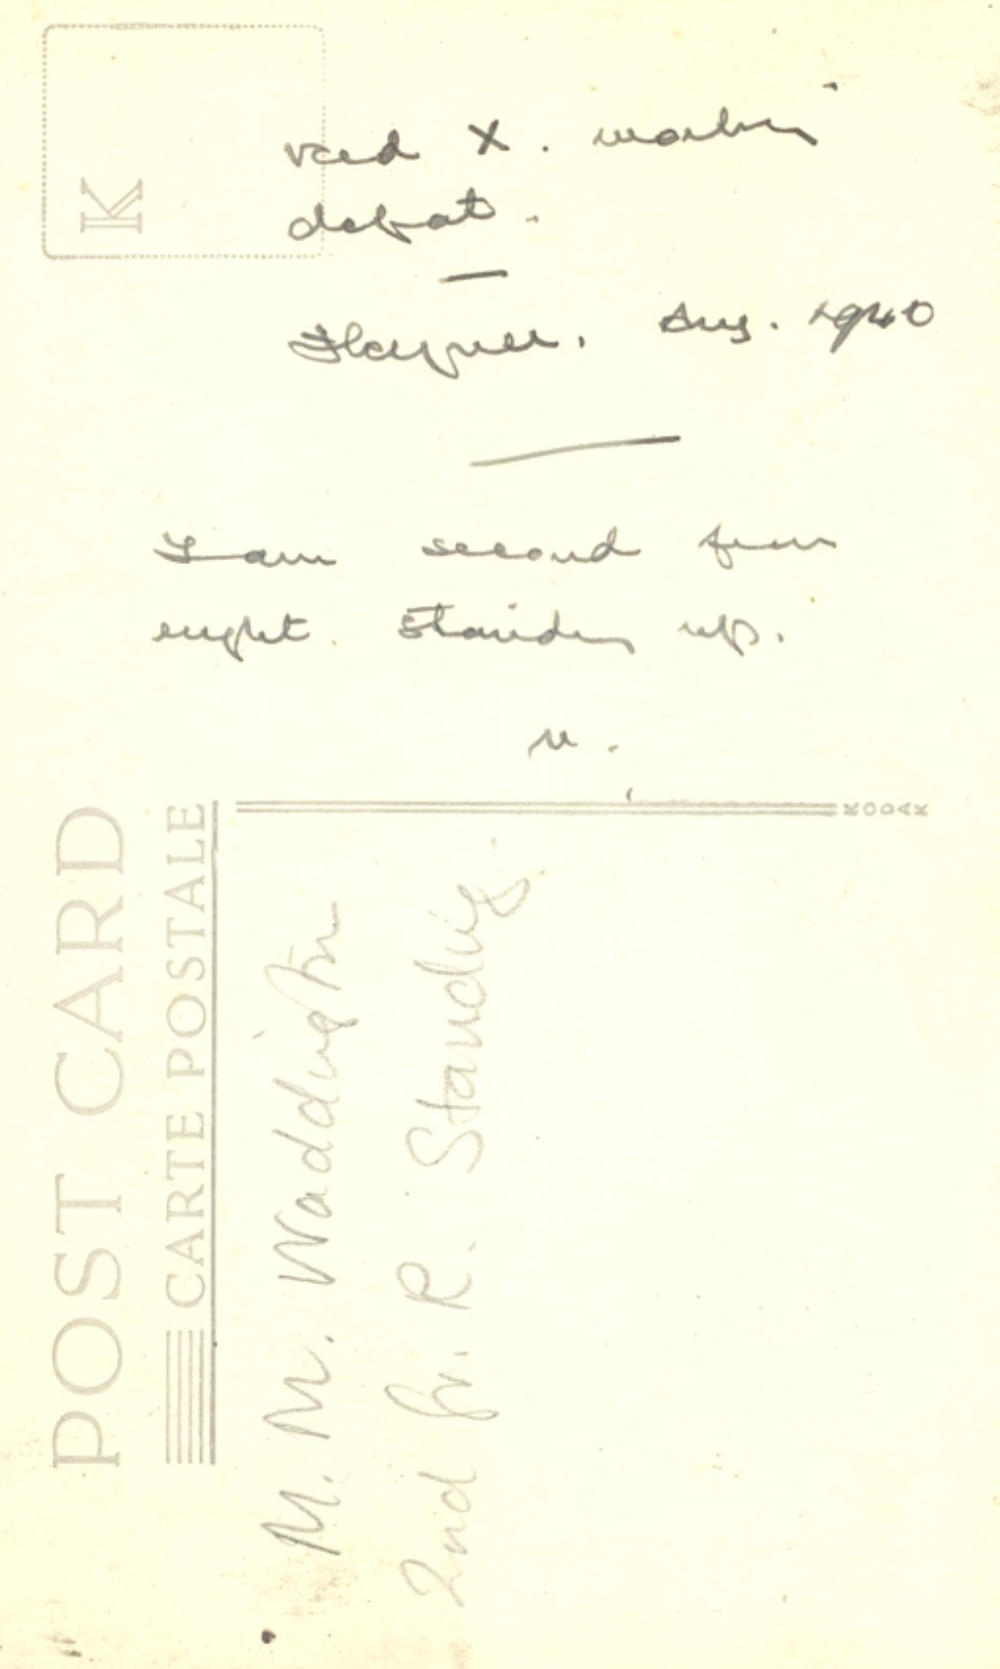 red X. working
depot.
Aug. 1940
I am second from
right. Standing up.
M.
K
POST CARD
CARTE POSTALE
KODAK
M. M. Waddington
2nd fr. R. Standing.